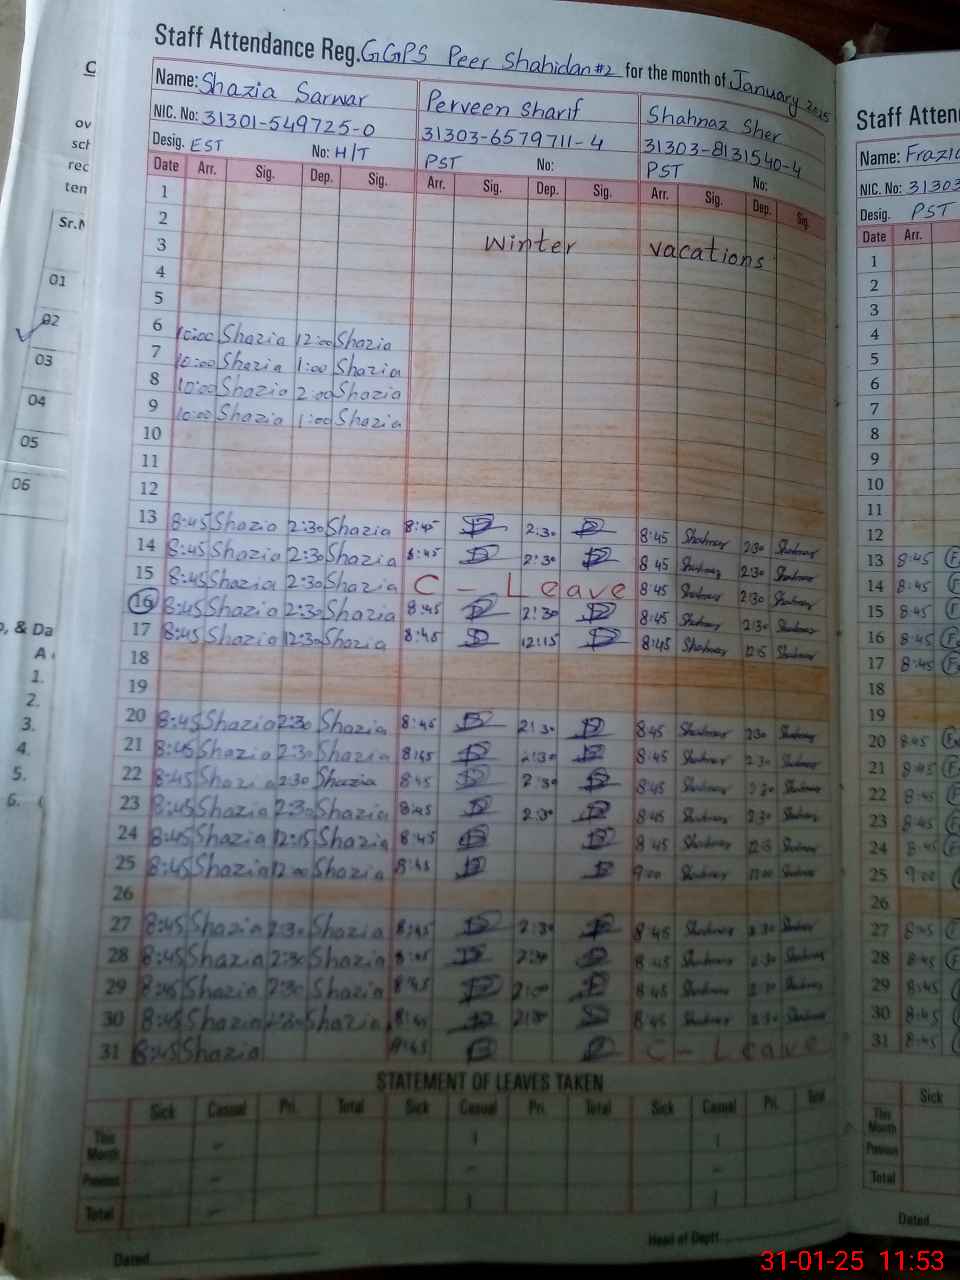 Staff Attendance Reg. GGPS Peer Shahidan #2 for the month of January 2025
Name: Shazia Sarwar Perveen Sharif Shahnaz Sher
NIC. No: 31301-549725-0 31303-6579711-4 31303-8131540-4
Desig. EST No: H/T PST No: PST No:
Date Arr. Sig. Dep. Sig. Arr. Sig. Dep. Sig. Arr. Sig. Dep. Sig.
1
2
3 Winter vacations
4
5
6 10:00 Shazia 12:00 Shazia
7 10:00 Shazia 1:00 Shazia
8 10:00 Shazia 2:00 Shazia
9 10:00 Shazia 1:00 Shazia
10
11
12
13 8:45 Shazia 2:30 Shazia 8:45 2:30 8:45 Shahnaz 2:30 Shahnaz
14 8:45 Shazia 2:30 Shazia 8:45 2:30 8:45 Shahnaz 2:30 Shahnaz
15 8:45 Shazia 2:30 Shazia C - Leave 8:45 Shahnaz 2:30 Shahnaz
16 8:45 Shazia 2:30 Shazia 8:45 2:30 8:45 Shahnaz 2:30 Shahnaz
17 8:45 Shazia 12:30 Shazia 8:45 12:15 8:45 Shahnaz 12:15 Shahnaz
18
19
20 8:45 Shazia 2:30 Shazia 8:45 2:30 8:45 Shahnaz 2:30 Shahnaz
21 8:45 Shazia 2:30 Shazia 8:45 2:30 8:45 Shahnaz 2:30 Shahnaz
22 8:45 Shazia 2:30 Shazia 8:45 2:30 8:45 Shahnaz 2:30 Shahnaz
23 8:45 Shazia 2:30 Shazia 8:45 2:30 8:45 Shahnaz 2:30 Shahnaz
24 8:45 Shazia 12:15 Shazia 8:45 8:45 Shahnaz Shahnaz
25 8:45 Shazia 12:00 Shazia 8:45 9:00 Shahnaz 12:00 Shahnaz
26
27 8:45 Shazia 2:30 Shazia 8:45 2:30 8:45 Shahnaz 2:30 Shahnaz
28 8:45 Shazia 2:30 Shazia 8:45 2:30 8:45 Shahnaz 2:30 Shahnaz
29 8:45 Shazia 2:30 Shazia 8:45 8:45 Shahnaz 2:30 Shahnaz
30 8:45 Shazia 2:30 Shazia 8:45 2:30 8:45 Shahnaz 2:30 Shahnaz
31 8:45 Shazia 8:45 C - Leave
STATEMENT OF LEAVES TAKEN
Sick Casual Pri. Total Sick Casual Pri. Total Sick Casual Pri. Total
This Month - 1 1
Previous - - -
Total - 1 1
Dated Head of Deptt.
Sr.N
01
02
03
04
05
06
1.
2.
3.
4.
5.
6.
Staff Atten
Name: Frazia
NIC. No: 31303
Desig. PST
Date Arr.
1
2
3
4
5
6
7
8
9
10
11
12
13 8:45
14 8:45
15 8:45
16 8:45
17 8:45
18
19
20 8:45
21 8:45
22 8:45
23 8:45
24 8:45
25 9:00
26
27 8:45
28 8:45
29 8:45
30 8:45
31 8:45
Sick
This Month
Previous
Total
Dated
31-01-25 11:53